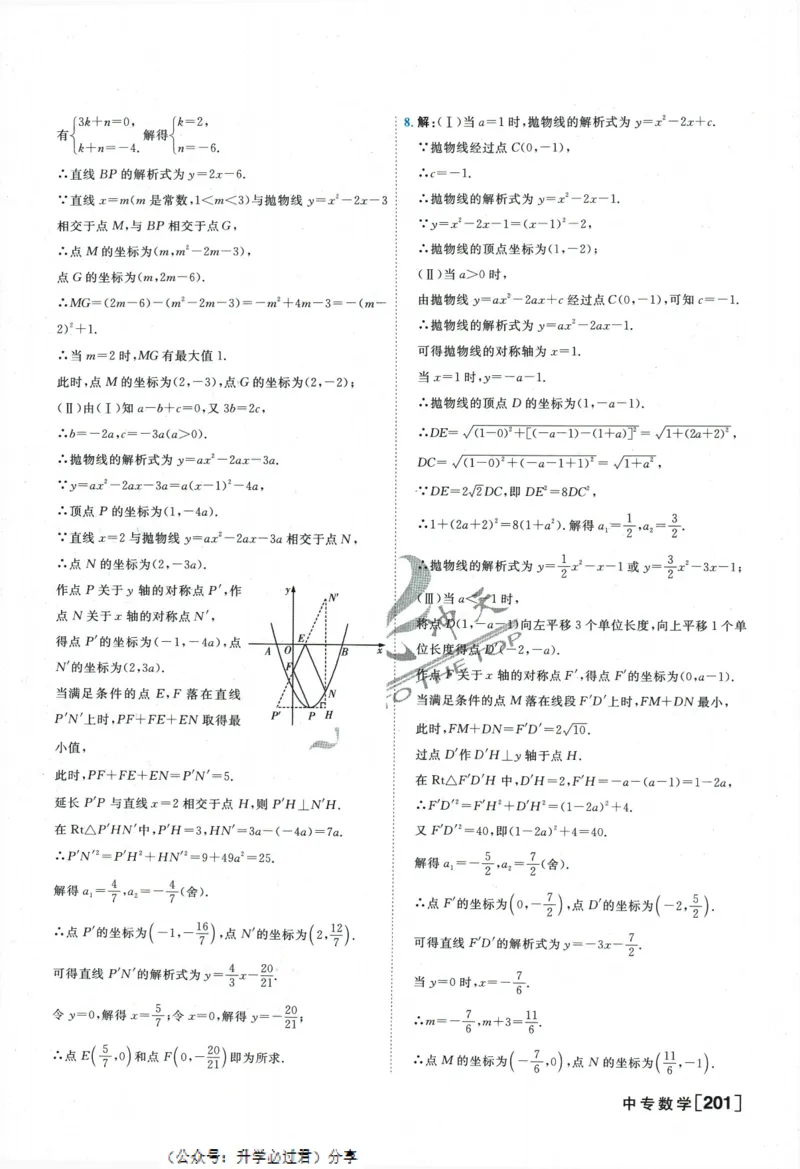 有{3k+n=0, k+n=-4. 解得{k=2, n=-6.
∴直线 BP 的解析式为 y=2x-6.
∵直线 x=m(m 是常数,1<m<3)与抛物线 y=x²-2x-3
相交于点 M,与 BP 相交于点G,
∴点 M 的坐标为(m,m²-2m-3),
点 G 的坐标为(m,2m-6).
∴MG=(2m-6)-(m²-2m-3)=-m²+4m-3=-(m-
2)²+1.
∴当 m=2 时,MG 有最大值 1.
此时,点 M 的坐标为(2,-3),点 G 的坐标为(2,-2);
(Ⅱ)由(Ⅰ)知 a-b+c=0,又 3b=2c,
∴b=-2a,c=-3a(a>0).
∴抛物线的解析式为 y=ax²-2ax-3a.
∵y=ax²-2ax-3a=a(x-1)²-4a,
∴顶点 P 的坐标为(1,-4a).
∵直线 x=2 与抛物线 y=ax²-2ax-3a 相交于点 N,
∴点 N 的坐标为(2,-3a).
作点 P 关于 y 轴的对称点 P′,作
点 N 关于 x 轴的对称点 N′,
得点 P′的坐标为(-1,-4a),点
N′的坐标为(2,3a).
当满足条件的点 E,F 落在直线
P′N′上时,PF+FE+EN 取得最
小值,
y
N′
E
A O B x
F
N
P′ P H
此时,PF+FE+EN=P′N′=5.
延长 P′P 与直线 x=2 相交于点 H,则 P′H⊥N′H.
在 Rt△P′HN′中,P′H=3,HN′=3a-(-4a)=7a.
∴P′N′²=P′H²+HN′²=9+49a²=25.
解得 a₁=4/7,a₂=-4/7(舍).
∴点 P′的坐标为(-1,-16/7),点 N′的坐标为(2,12/7).
可得直线 P′N′的解析式为 y=4/3x-20/21.
令 y=0,解得 x=5/7;令 x=0,解得 y=-20/21;
∴点 E(5/7,0)和点 F(0,-20/21)即为所求.
8. 解:(Ⅰ)当 a=1 时,抛物线的解析式为 y=x²-2x+c.
∵抛物线经过点 C(0,-1),
∴c=-1.
∴抛物线的解析式为 y=x²-2x-1.
∵y=x²-2x-1=(x-1)²-2,
∴抛物线的顶点坐标为(1,-2);
(Ⅱ)当 a>0 时,
由抛物线 y=ax²-2ax+c 经过点 C(0,-1),可知 c=-1.
∴抛物线的解析式为 y=ax²-2ax-1.
可得抛物线的对称轴为 x=1.
当 x=1 时,y=-a-1.
∴抛物线的顶点 D 的坐标为(1,-a-1).
∴DE=√((1-0)²+[(-a-1)-(1+a)]²)=√(1+(2a+2)²),
DC=√((1-0)²+(-a-1+1)²)=√(1+a²),
∵DE=2√2DC,即 DE²=8DC²,
∴1+(2a+2)²=8(1+a²).解得 a₁=1/2,a₂=3/2.
∴抛物线的解析式为 y=1/2x²-x-1 或 y=3/2x²-3x-1;
(Ⅲ)当 a<-1 时,
将点 D(1,-a-1)向左平移 3 个单位长度,向上平移 1 个单
位长度得点 D′(-2,-a).
作点 F 关于 x 轴的对称点 F′,得点 F′的坐标为(0,a-1).
当满足条件的点 M 落在线段 F′D′上时,FM+DN 最小,
此时,FM+DN=F′D′=2√10.
过点 D′作 D′H⊥y 轴于点 H.
在 Rt△F′D′H 中,D′H=2,F′H=-a-(a-1)=1-2a,
∴F′D′²=F′H²+D′H²=(1-2a)²+4.
又 F′D′²=40,即(1-2a)²+4=40.
解得 a₁=-5/2,a₂=7/2(舍).
∴点 F′的坐标为(0,-7/2),点 D′的坐标为(-2,5/2).
可得直线 F′D′的解析式为 y=-3x-7/2.
当 y=0 时,x=-7/6.
∴m=-7/6,m+3=11/6.
∴点 M 的坐标为(-7/6,0),点 N 的坐标为(11/6,-1).
冲天
TO THE TOP
中专数学[201]
(公众号:升学必过君)分享